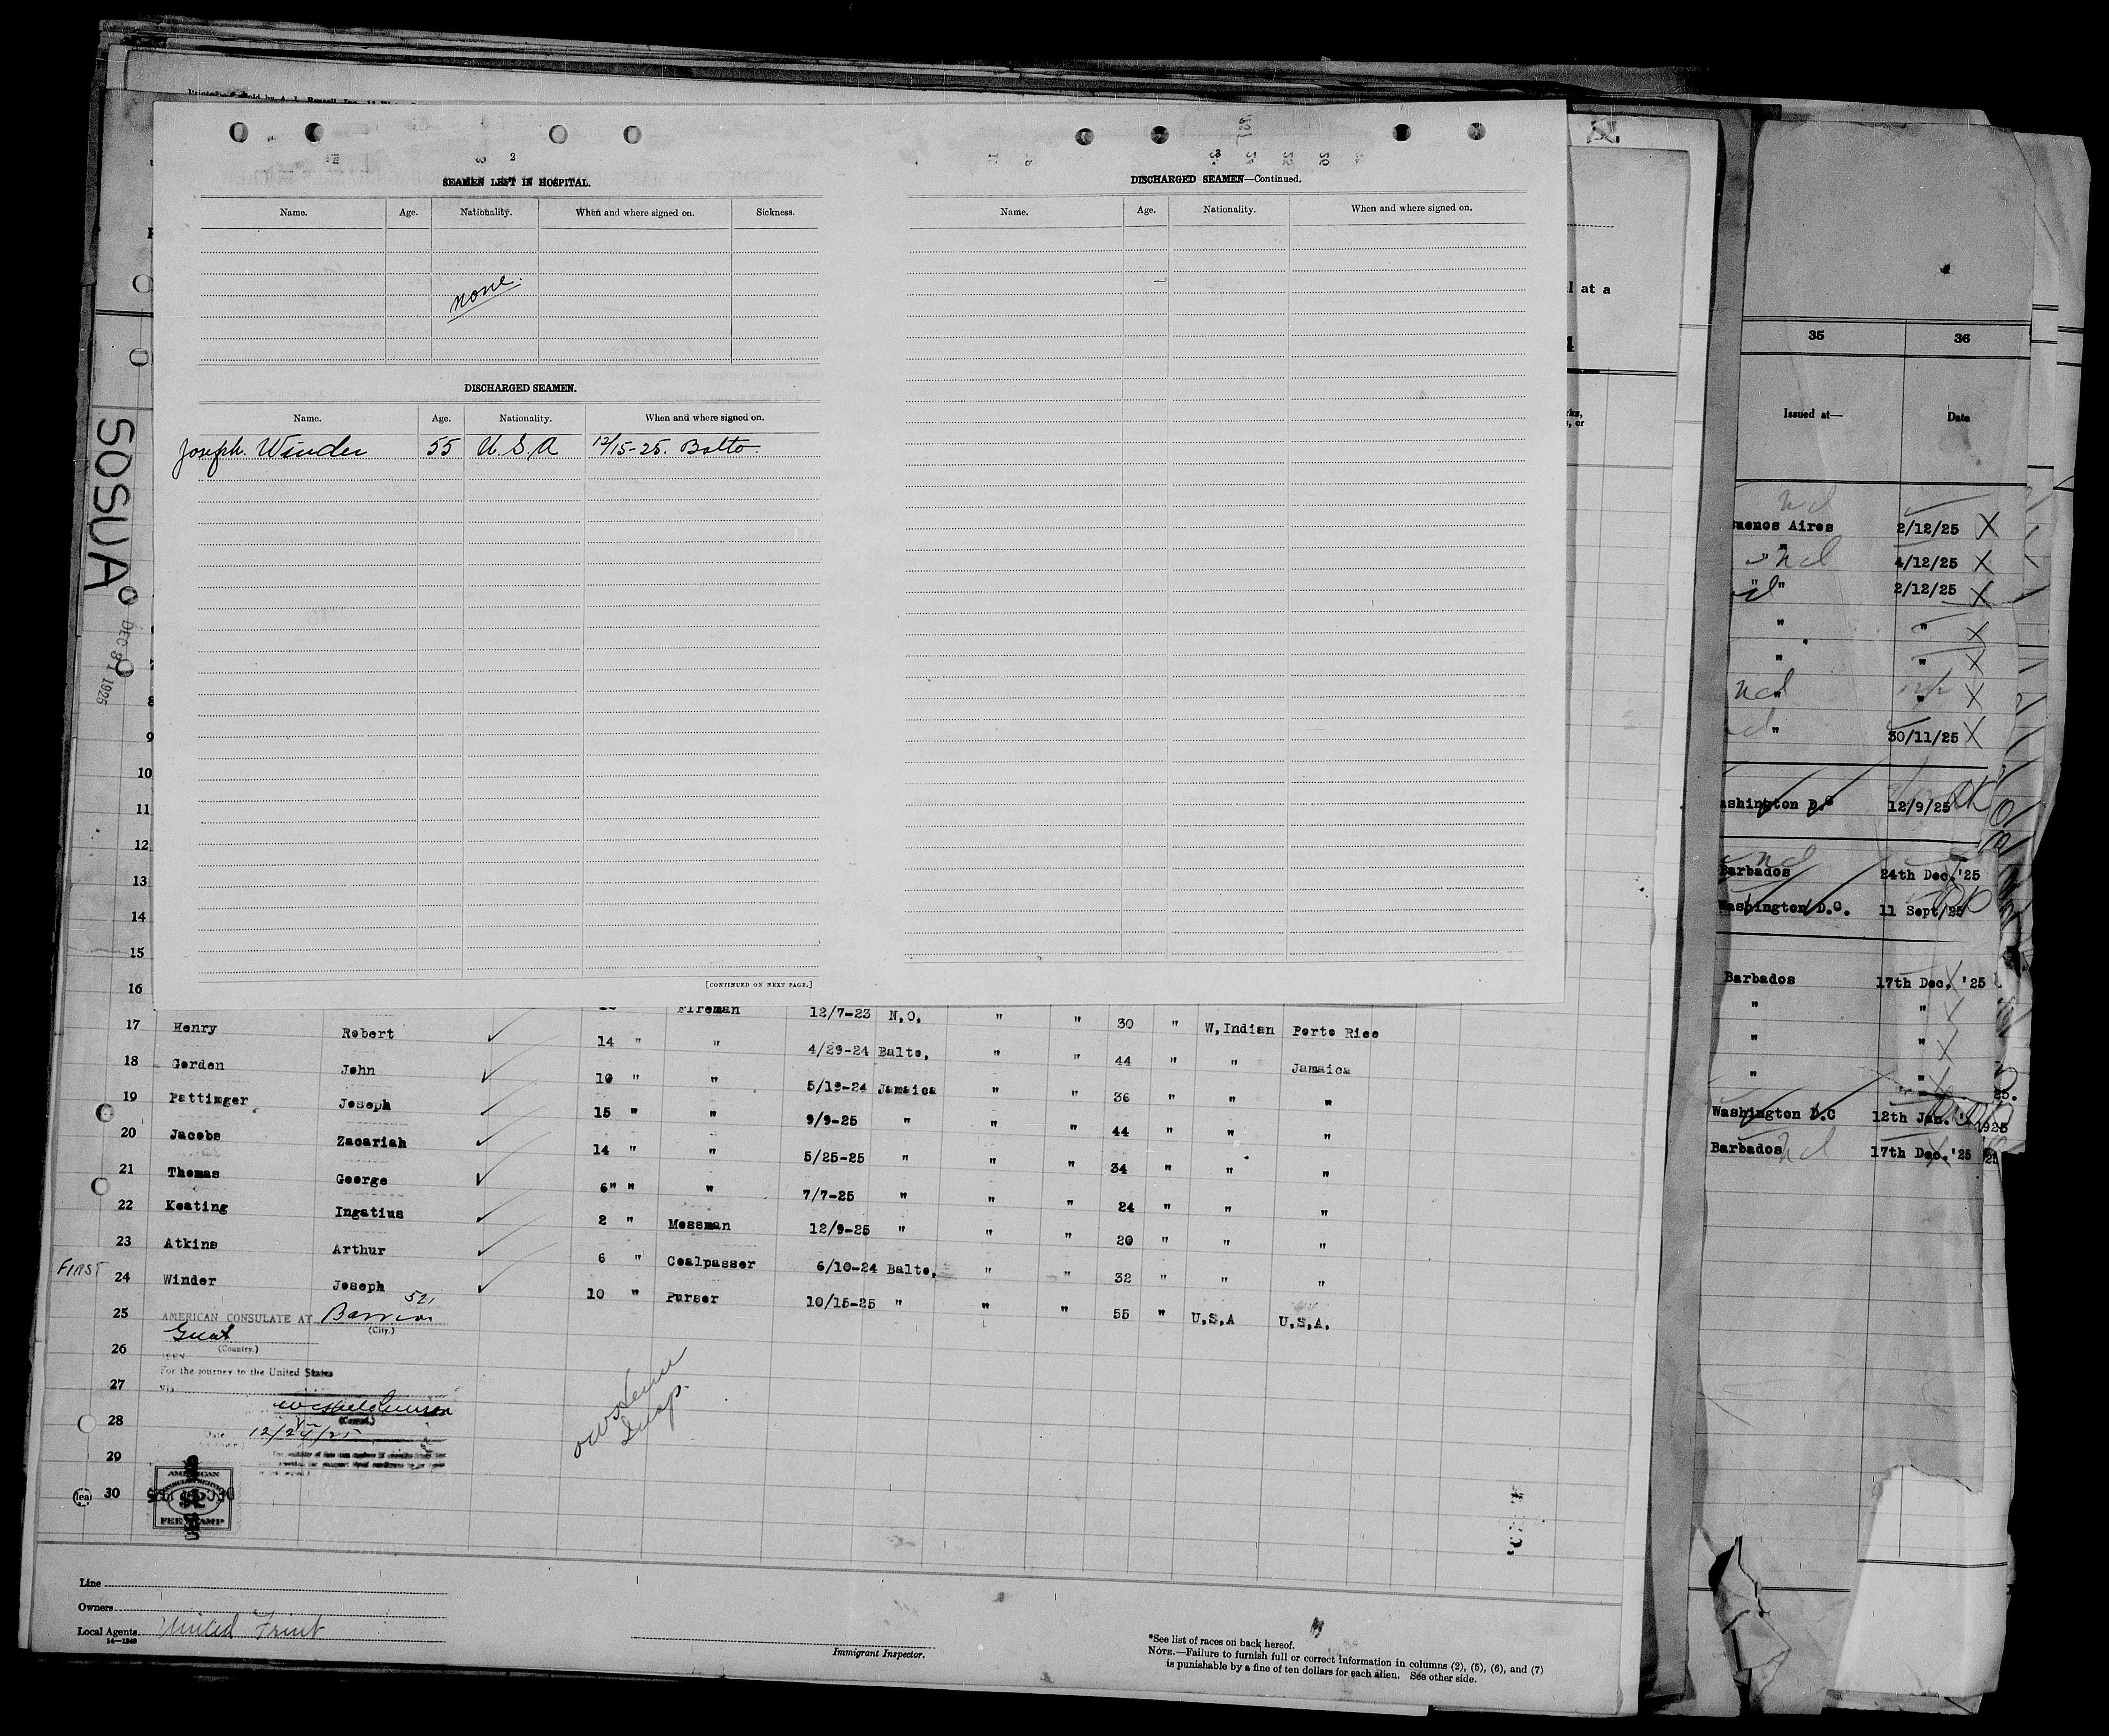 SEAMEN LEFT IN HOSPITAL.
Name. Age. Nationality. When and where signed on. Sickness.
none.
DISCHARGED SEAMEN.
Name. Age. Nationality. When and where signed on.
Joseph. Winder 55 U.S.A 12/15-25. Balto.
[CONTINUED ON NEXT PAGE.]
3
DISCHARGED SEAMEN—Continued.
Name. Age. Nationality. When and where signed on.
l at a
SOSUA
DEC 31 1925
8
9
10
11
12
13
14
15
16
Fireman 12/7-23 N.O. " " 30 " W.Indian Porto Rico
17 Henry Robert 14 " " 4/29-24 Balto. " " 44 " " Jamaica
18 Gordon John 10 " " 5/19-24 Jamaica " " 36 " " "
19 Pattinger Joseph 15 " " 9/9-25 " " " 44 " " "
20 Jacobs Zacariah 14 " " 5/25-25 " " " 34 " " "
21 Thomas George 6" " " 7/7-25 " " " 24 " " "
22 Keating Ingatius 2 " Messman 12/9-25 " " " 20 " " "
23 Atkins Arthur 6 " Coalpasser 6/10-24 Balto. " " 32 " " "
FIRST 24 Winder Joseph 10 " Purser 10/15-25 " " " 55 " U.S.A U.S.A.
25 AMERICAN CONSULATE AT
(City.)
Guat
(Country.)
26
SEEN
For the journey to the United States
27
28
(Consul.)
Date 12/24/25
29
30
AMERICAN
CONSULAR SERVICE
$2
FEE STAMP
Line
Owners
Local Agents United Fruit
14—1240
Immigrant Inspector.
*See list of races on back hereof.
NOTE.—Failure to furnish full or correct information in columns (2), (5), (6), and (7)
is punishable by a fine of ten dollars for each alien. See other side.
35 36
Issued at— Date
nd
Buenos Aires 2/12/25 X
" nd 4/12/25 X
" 2/12/25 X
" " X
" " X
nd " " X
" 30/11/25 X
Washington D.C 12/9/25 OK
nd
Barbados 24th Dec.'25
Washington D.C. 11 Sept/25
Barbados 17th Dec. '25
" " X
" " X
" " X
25.
Washington D.C 12th Jan. 1925
Barbados nd 17th Dec.'25